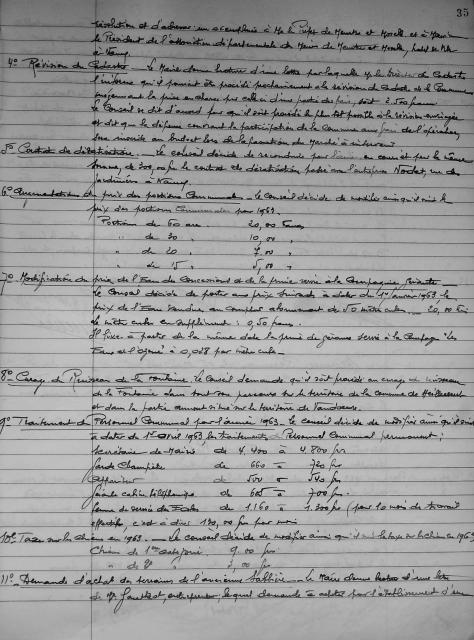 35
résolution et d'adresser un exemplaire à Mr le Préfet de Meurthe et Moselle et à Monsieur
le Président de l'association départementale des Maires de Meurthe et Moselle, hôtel de Ville
à Nancy.
4° Révision du Cadastre. Le Maire donne lecture d'une lettre par laquelle Mr le Directeur du Cadastre
l'informe qu'il pourrait être procédé prochainement à la révision du Cadastre de la Commune
moyennant la prise en charge par celle-ci d'une partie des frais, soit 2.500 francs
Le Conseil se dit d'accord pour qu'il soit procédé le plus tôt possible à la révision envisagée
et dit que la dépense couvrant la participation de la Commune aux frais de l'opération,
sera inscrite au budget lors de la passation du Marché à intervenir
5° Contrat de dératisation. Le conseil décide de reconduire pour l'année en cours et pour la même
somme, de 300,00 frs le contrat de dératisation passé avec l'entreprise rue des
Jardiniers à Nancy.
6° Augmentation du prix des portions Communales. Le Conseil décide de modifier ainsi qu'il suit le
prix des portions Communales pour 1963.
Portions de 60 ares 20,00 francs
" de 30 " 10,00 "
" de 20 " 7.00 "
" de 15 " 5,00 "
7° Modification du prix de l'Eau des Concessions et de la prime versée à la Compagnie
Le Conseil décide de porter aux prix suivants à dater du 1er janvier 1963 le
prix de l'Eau vendue au compteur abonnement de 50 mètres cubes 20,00 frs
le mètre cube en supplément : 0,50 francs.
Il fixe à partir de la même date la prime de gérance versée à la Compagnie "les
Eaux et l'Ozone" à 0,028 par mètre cube.
8° Curage du Ruisseau de la Fontaine. Le Conseil demande qu'il soit procédé au curage du ruisseau
de la Fontaine dans tout son parcours sur le territoire de la commune de Heillecourt
et dans la partie amont située sur le territoire de Vandoeuvre.
9° Traitement du Personnel Communal pour l'année 1963. Le conseil décide de modifier ainsi qu'il suit
à dater du 1er Avril 1963 les traitements du Personnel Communal permanent :
Secrétaire de Mairie de 4.400 à 4.800 frs
Garde Champêtre de 660 à 720 frs
Appariteur de 500 à 540 frs
Gérante cabine téléphonique de 605 à 700 frs.
Femme de service des Ecoles de 1.160 à 1.300 frs (pour 10 mois de travail
effectifs, c'est à dire 130,00 frs par mois
10° Taxe sur les chiens en 1963. Le Conseil décide de modifier ainsi qu'il suit la taxe sur les chiens en 1963
Chiens de 1ère catégorie 9.00 frs
" de 2e " 3,00 frs
11° Demande d'achat de terrains de l'ancienne Sablière. Le Maire donne lecture d'une lettre
de Mr entrepreneur, lequel demande à acheter pour l'établissement d'un